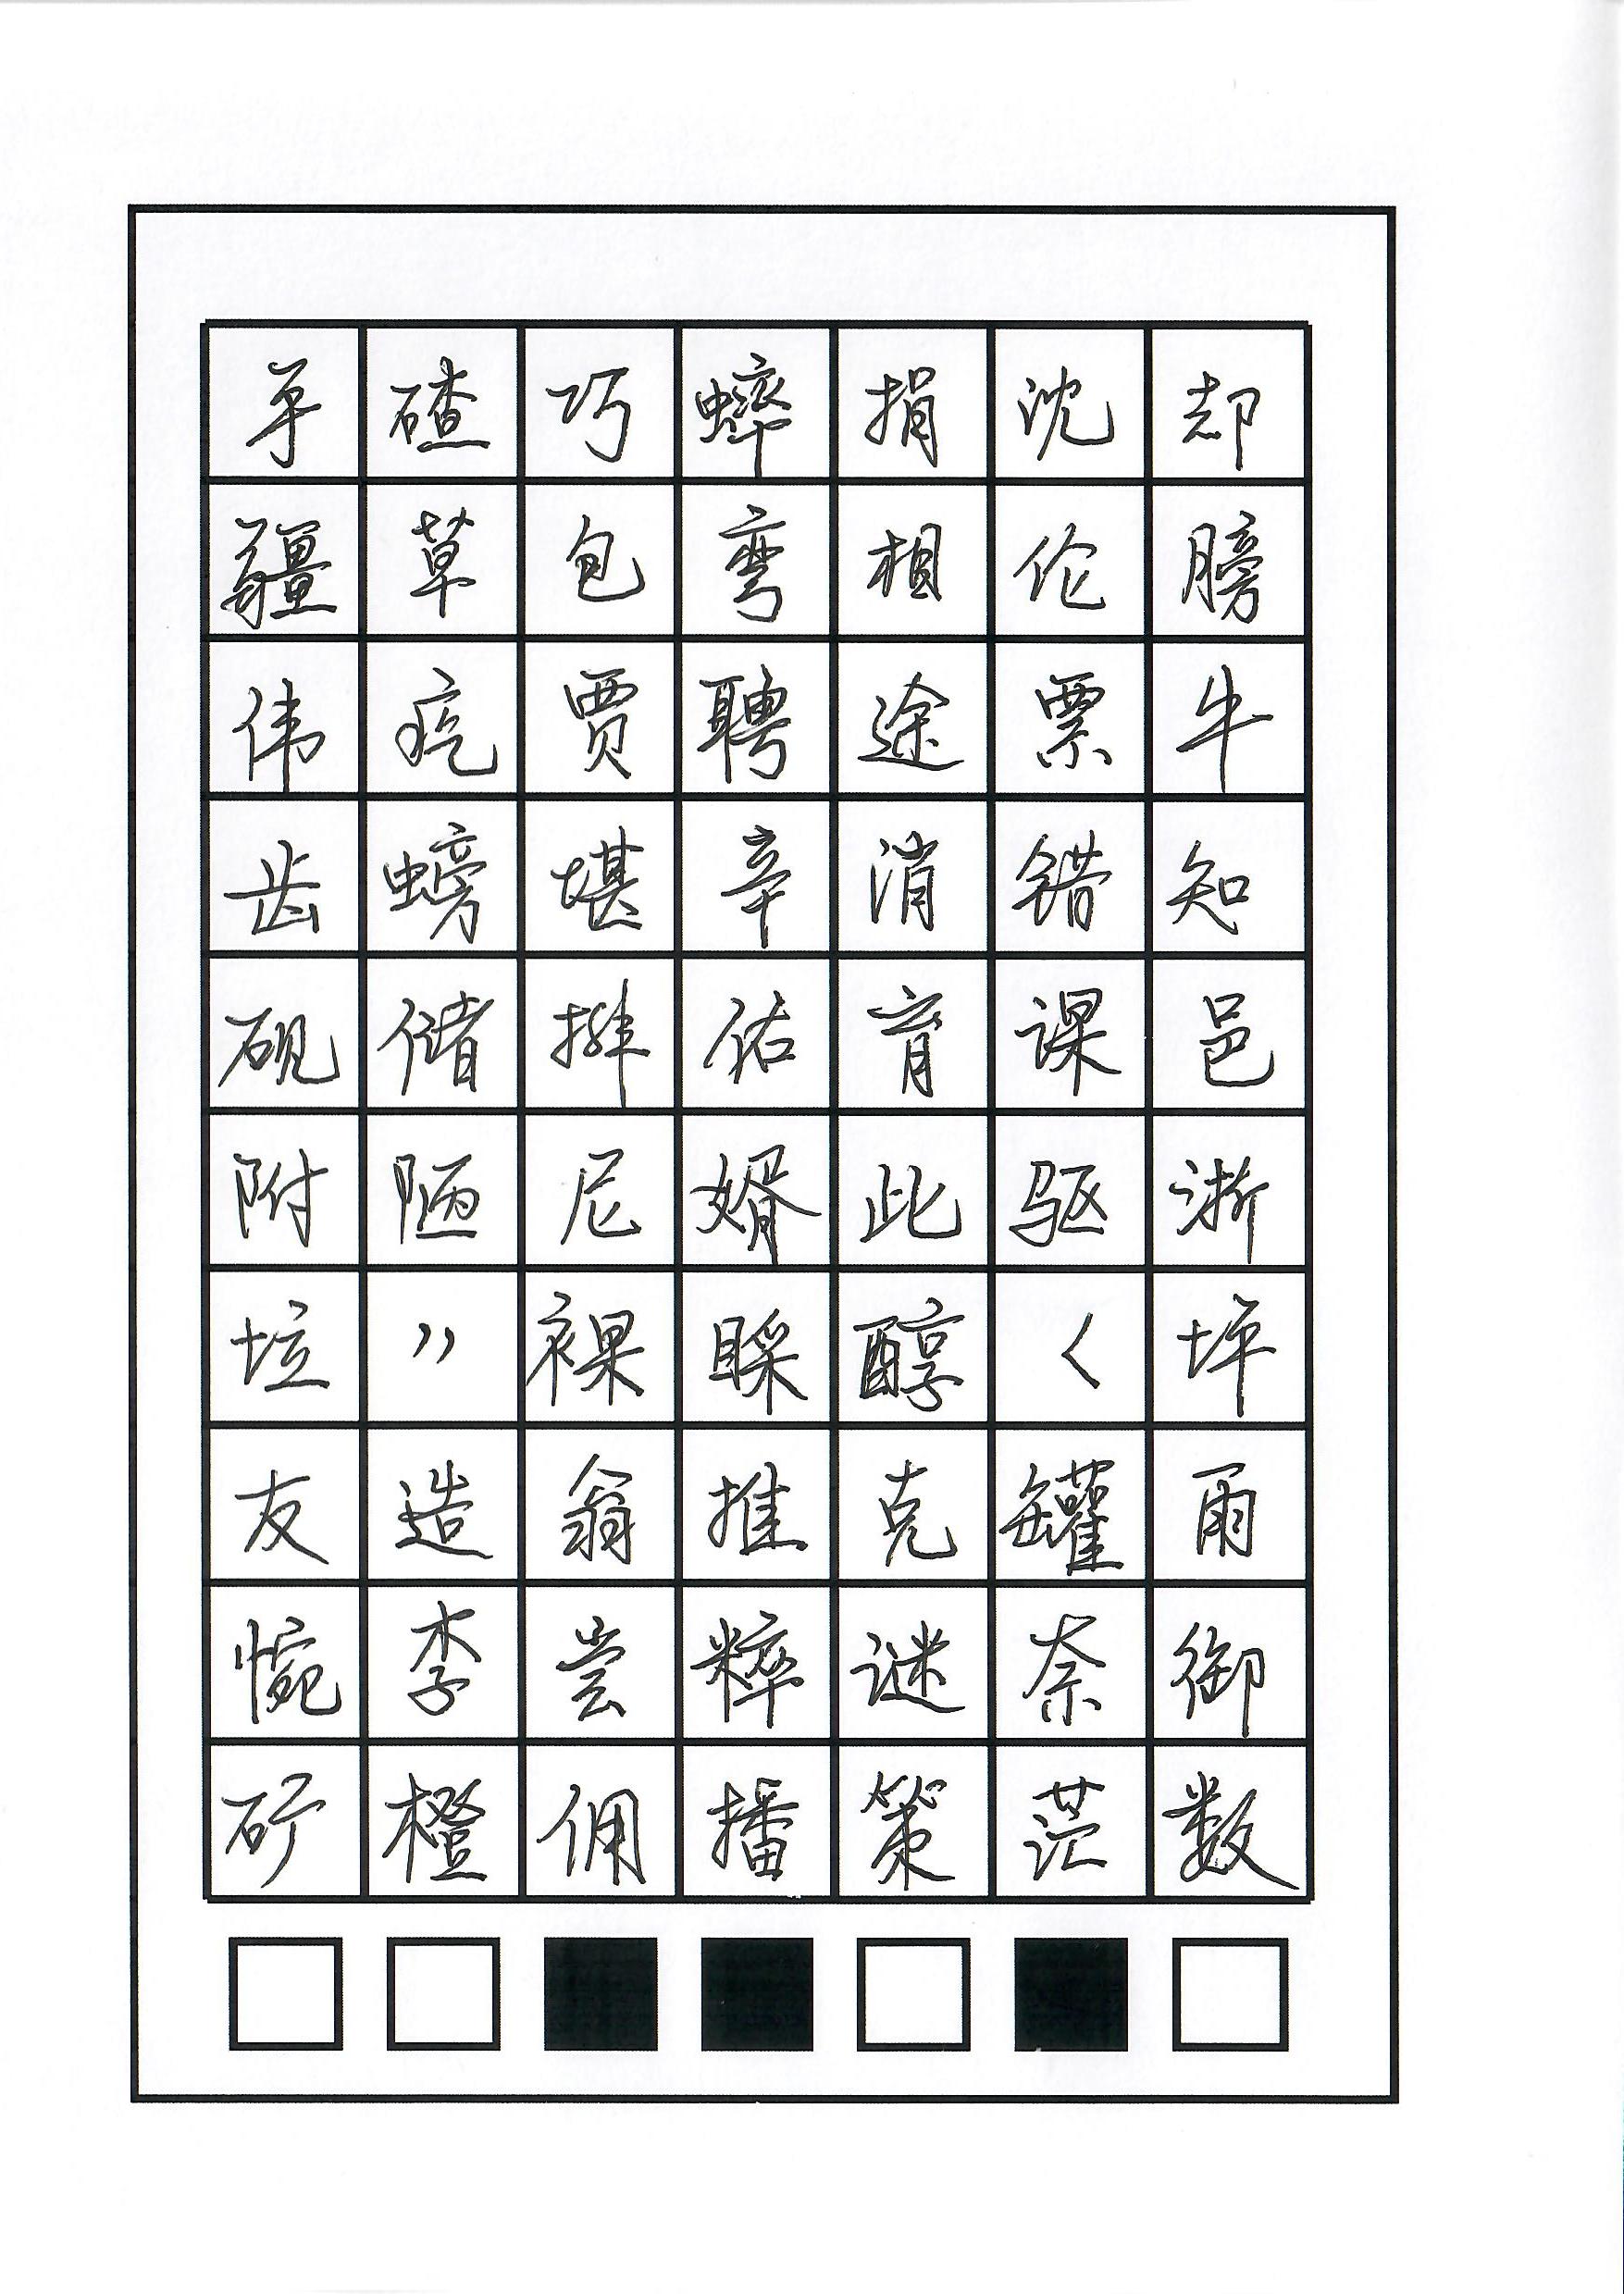 手碴巧蟀捐沈却
疆草包弯相伦膀
伟疙贾聘途票牛
齿螃堪辛消错知
砚储排佑育课邑
附陋尼婿此驱浙
垃”裸睬醇〈坪
友造翁推克罐雨
惋李尝粹谜奈御
矿橙佣播策茫数